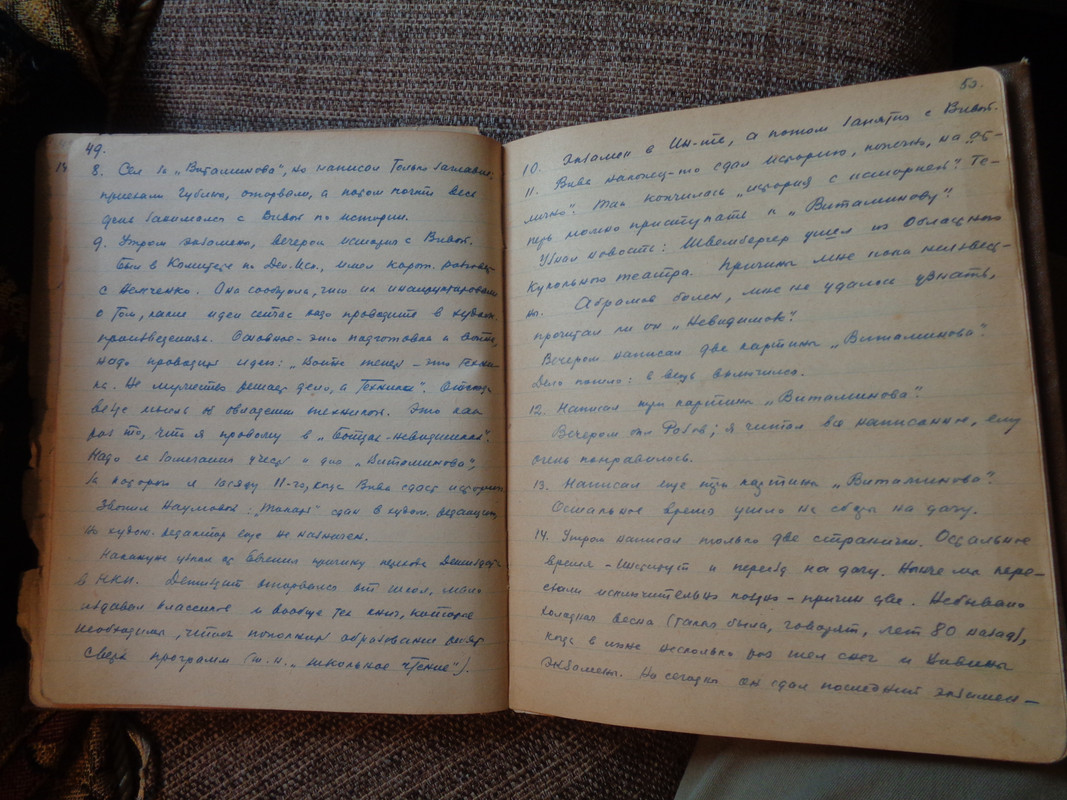 49.
14
8. Сел за „Витаминова", но написал только заглавие:
приехали Губину, оторвали, а потом почти весь
день занимался с Вивой по истории.
9. Утром экзамены, вечером история с Вивой.
Был в Комитете по Дел. Иск., имел корот. разговор
с Демченко. Она сообщила, что их инструктировали
о том, какие идеи сейчас надо проводить в худож.
произведениях. Основное – это подготовка к войне,
надо проводить идею: „Война теперь – это техни-
ка. Не мужество решает дело, а техника". Отсюда
вторая мысль об овладении техникой. Это как
раз то, что я провожу в „Бойцах-невидимках".
Надо ее замечания учесть и для „Витаминова",
за который я засяду 11-го, когда Вива сдаст историю.
Звонил Наумовой: сдан в худож. редакцию,
но худож. редактор еще не назначен.
Накануне узнал от Евгения причину перевода Детиздата
в НКП. Детиздат оторвался от школ, мало
издавал классиков и вообще тех книг, которые
необходимы, чтобы пополнить образование ребят
сверх программ (т.н. „школьное чтение").
50.
10. Экзамен в Ин-те, а потом занятия с Вивой.
11. Вива наконец-то сдал историю, конечно, на „от-
лично". Так кончилась „история с историей". Те-
перь можно приступать к „Витаминову".
Узнал новость: Швембергер ушел из Областного
Кукольного театра. Причины мне пока неизвест-
ны. Абрамов болен, мне не удалось узнать,
прочитал ли он „Невидимок".
Вечером написал две картины „Витаминова".
Дело пошло: в вещь включился.
12. Написал три картины „Витаминова".
Вечером был Розов; я читал все написанное, ему
очень понравилось.
13. Написал еще три картины „Витаминова".
Остальное время ушло на сборы на дачу.
14. Утром написал только две странички. Остальное
время – институт и переезд на дачу. Нынче мы пере-
ехали исключительно поздно – причин две. Небывало
холодная весна (такая была, говорят, лет 80 назад),
когда в июне несколько раз шел снег и Вивины
экзамены. Но сегодня он сдал последний экзамен –